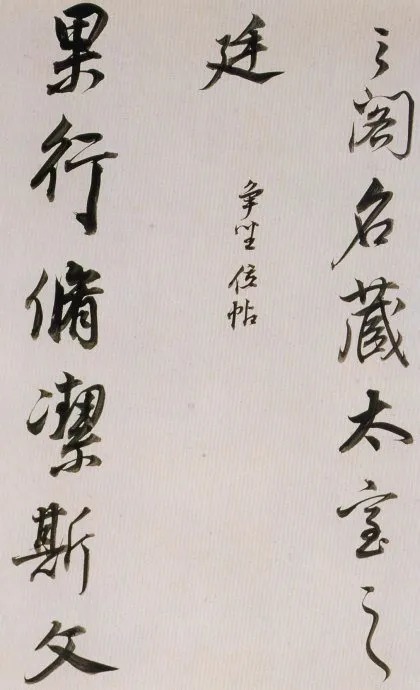 之閣名藏太室之
廷
争坐位帖
果行脩潔斯文